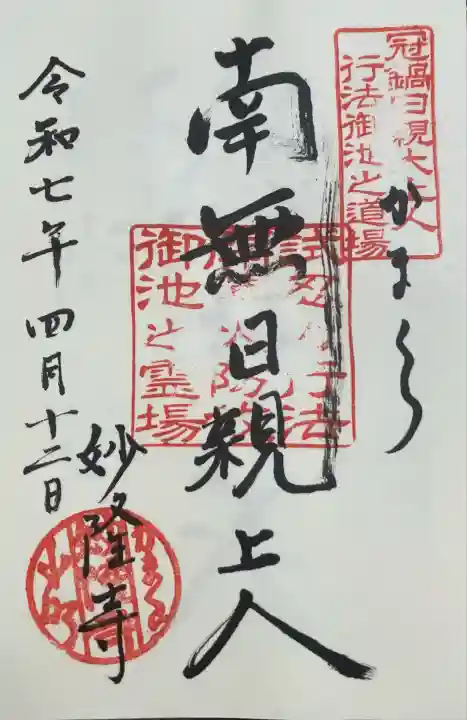 冠鍋日親上人
行法御池之道場
かまくら
南無日親上人
御池之霊場
妙隆寺
令和七年四月十二日